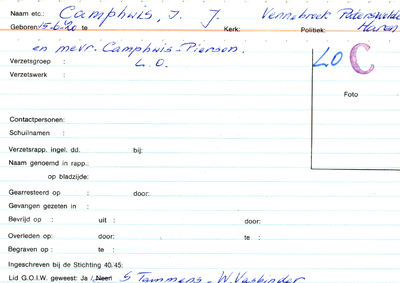 Naam etc.: Camphuis, J. J. Vennebroek Paterswolde
Geboren: 15-6-20 te Kerk: Politiek: Haren
en mevr. Camphuis-Piersen.
Verzetsgroep : L.O. LO C
Verzetswerk :
Foto
Contactpersonen:
Schuilnamen :
Verzetsrapp. ingel. dd. bij:
Naam genoemd in rapp.:
op bladzijde:
Gearresteerd op : door:
Gevangen gezeten in :
Bevrijd op : uit : door:
Overleden op: door: te :
Begraven op : te :
Ingeschreven bij de Stichting 40/45:
Lid G.O.I.W. geweest: Ja / Neen S Tammens - W. Veskinder